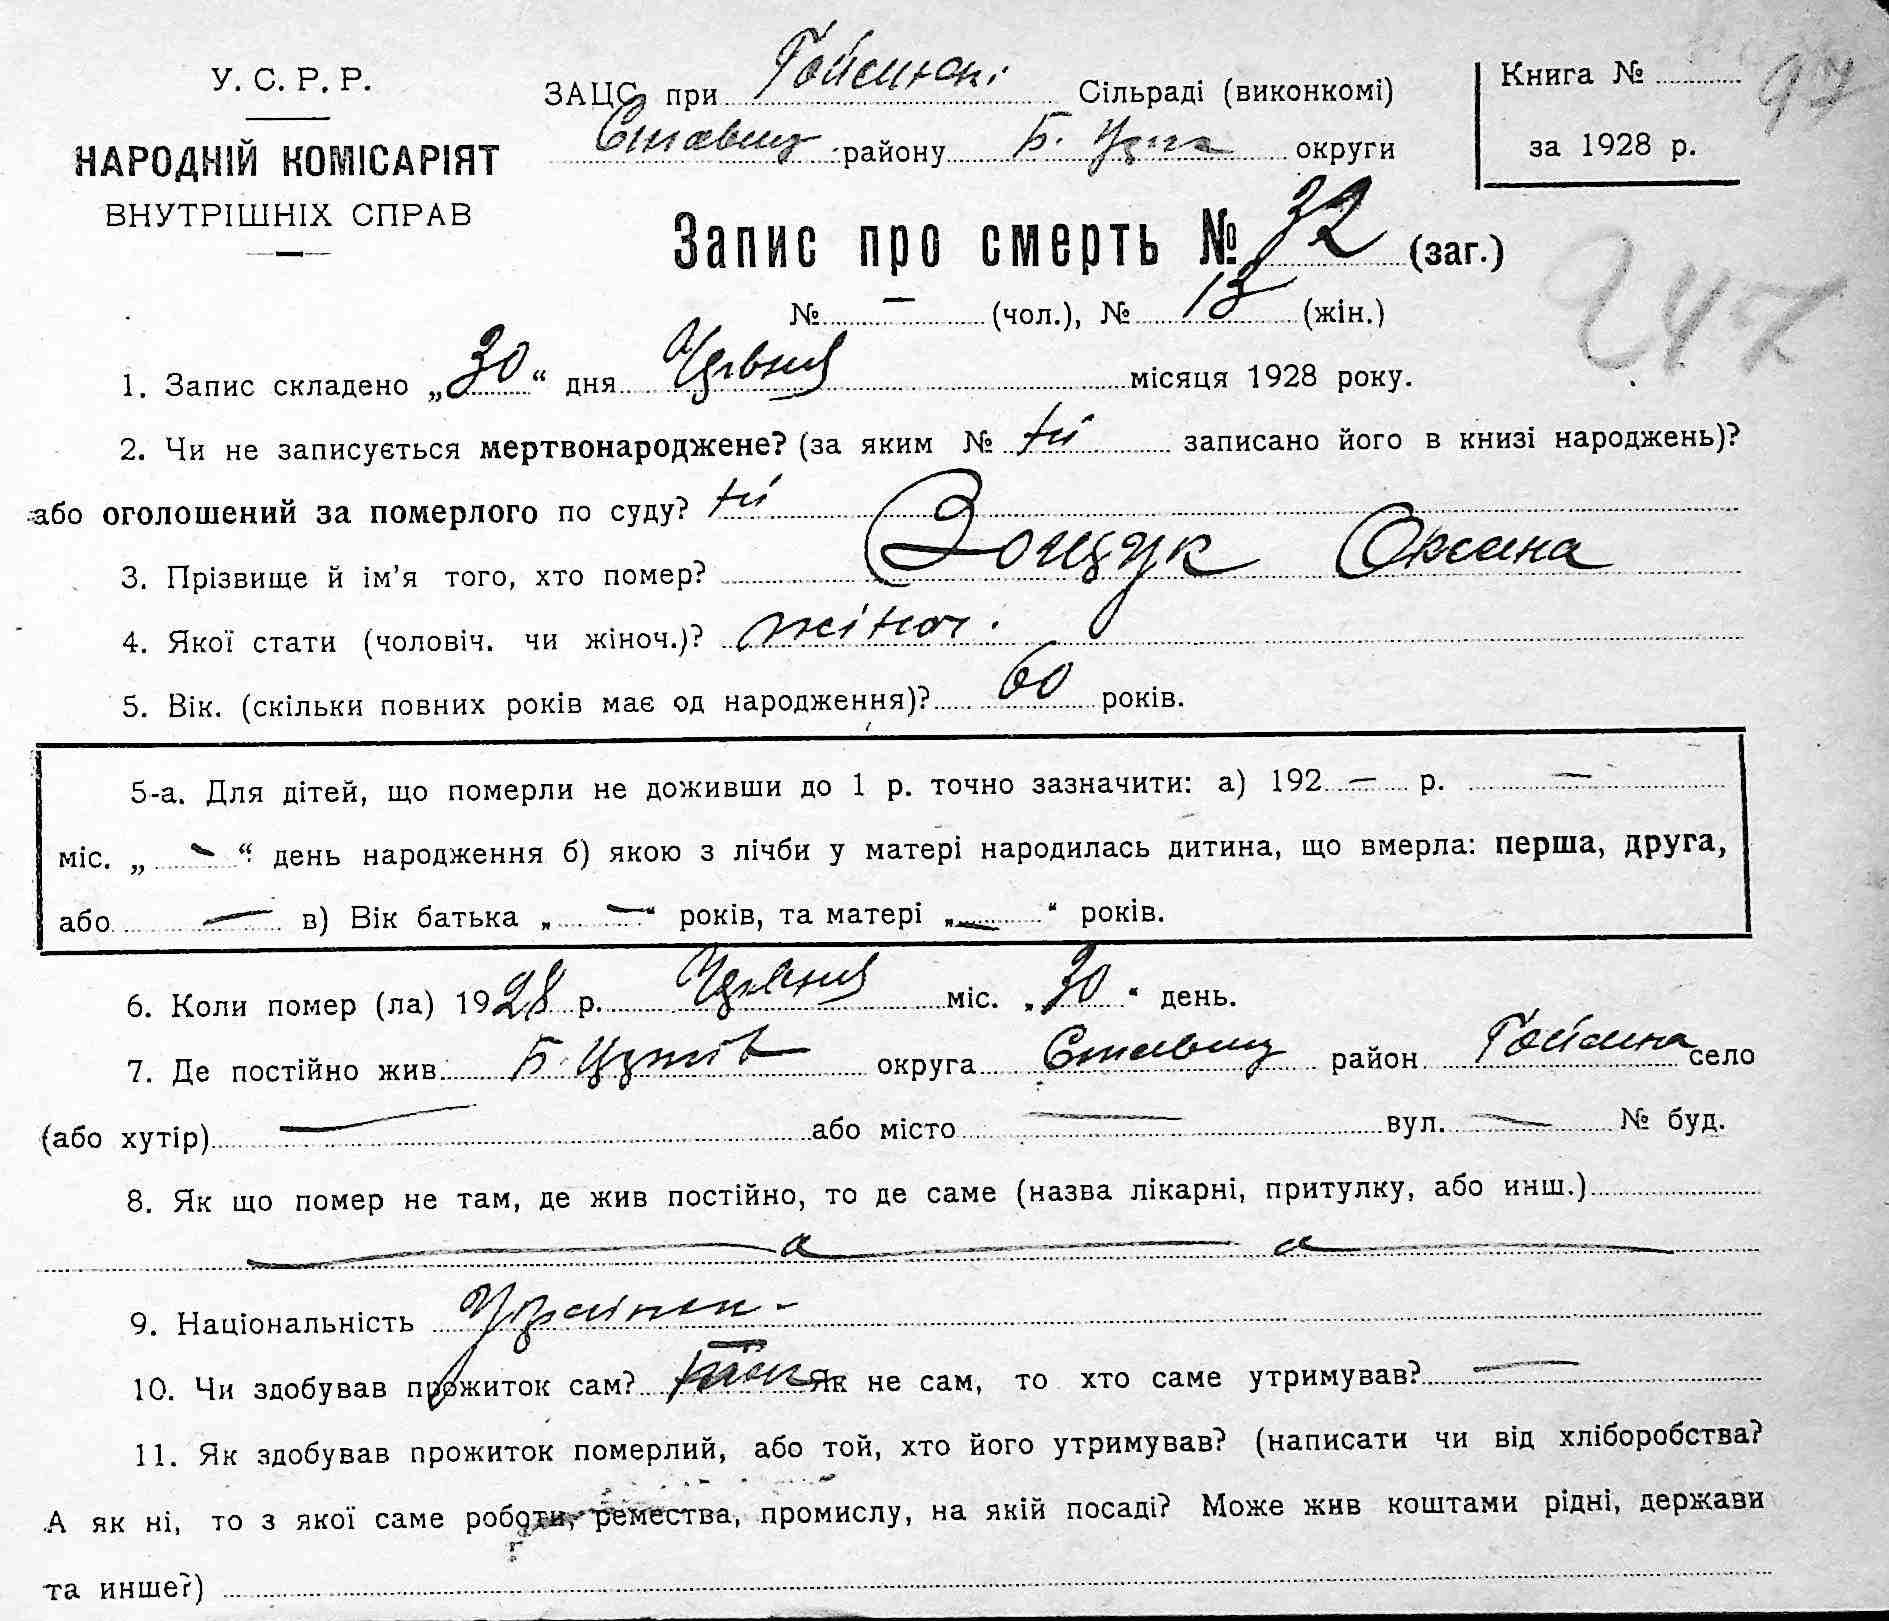 У. С. Р. Р.
НАРОДНІЙ КОМІСАРІЯТ
ВНУТРІШНІХ СПРАВ
ЗАЦС при Гойсинські Сільраді (виконкомі)
Ставищ району Б. Церк округи
Книга № 97
за 1928 р.
Запис про смерть № 32 (заг.)
№ — (чол.), № 13 (жін.)
247
1. Запис складено „30“ дня Червня місяця 1928 року.
2. Чи не записується мертвонароджене? (за яким № ні записано його в книзі народжень)?
або оголошений за померлого по суду? ні
3. Прізвище й ім'я того, хто помер? Зощук Оксана
4. Якої стати (чоловіч. чи жіноч.)? жіноч.
5. Вік. (скільки повних років має од народження)? 60 років.
5-а. Для дітей, що померли не доживши до 1 р. точно зазначити: а) 192 — р. —
міс. „ — “ день народження б) якою з лічби у матері народилась дитина, що вмерла: перша, друга,
або — в) Вік батька „ — “ років, та матері „ — “ років.
6. Коли помер (ла) 1928 р. Червня міс. „30“ день.
7. Де постійно жив Б. Церків округа Ставищ район село
(або хутір) — або місто — вул. — № буд.
8. Як що помер не там, де жив постійно, то де саме (назва лікарні, притулку, або инш.)
9. Національність Україн.
10. Чи здобував прожиток сам? Як не сам, то хто саме утримував? —
11. Як здобував прожиток померлий, або той, хто його утримував? (написати чи від хліборобства?
А як ні, то з якої саме роботи, ремества, промислу, на якій посаді? Може жив коштами рідні, держави
та инше?)